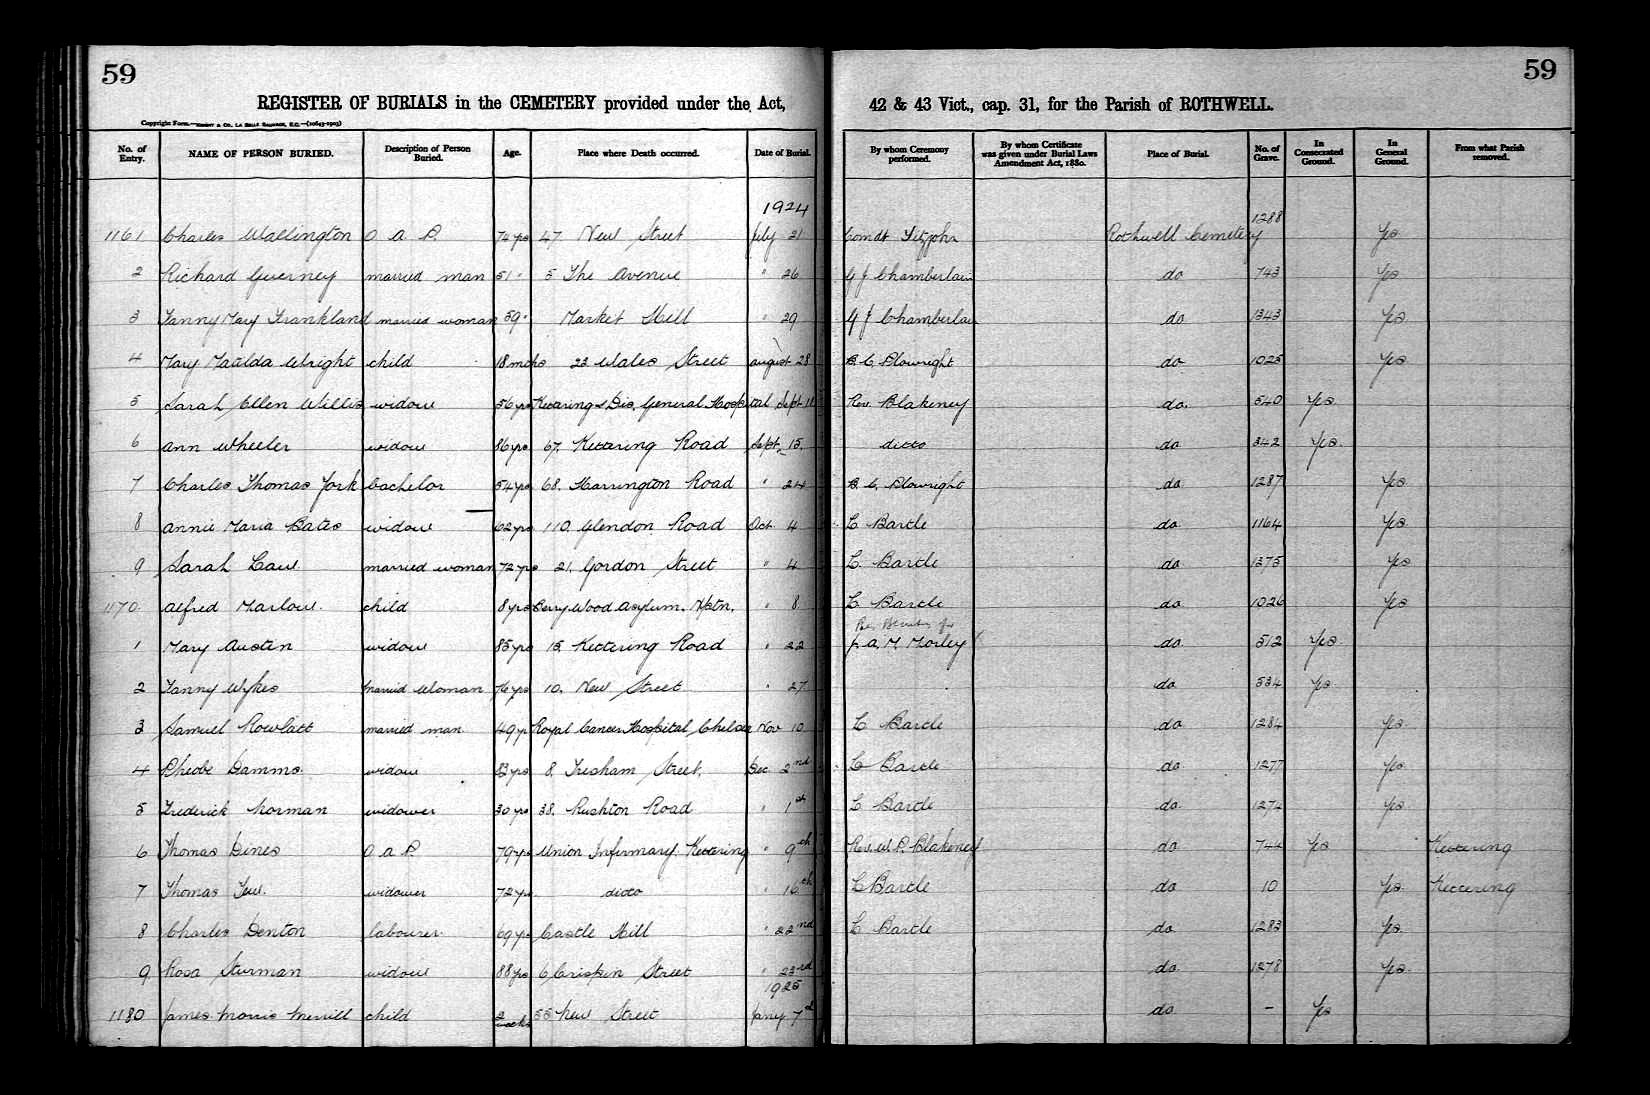 59
59
REGISTER OF BURIALS in the CEMETERY provided under the Act, 42 & 43 Vict., cap. 31, for the Parish of ROTHWELL.
Copyright Form.—KNIGHT & CO., LA BELLE SAUVAGE, E.C.—(10643-1903)
No. of Entry. NAME OF PERSON BURIED. Description of Person Buried. Age. Place where Death occurred. Date of Burial. By whom Ceremony performed. By whom Certificate was given under Burial Laws Amendment Act, 1880. Place of Burial. No. of Grave. In Consecrated Ground. In General Ground. From what Parish removed.
1924
1161 Charles Wallington O A P. 74 yrs 47. New Street July 21 Comdt Fitzjohn Rothwell Cemetery 1288 Yes
2 Richard Guerney married man 51 " 5 The Avenue " 26 G J Chamberlain do 743 Yes
3 Fanny Mary Frankland married woman 59 " Market Hill " 29 G J Chamberlain do 1343 Yes
4 Mary Matilda Wright child 18 mths 23 Wales Street August 28 B C Plowright do 1025 Yes
5 Sarah Ellen Willis widow 56 yrs Kettering & Dis. General Hospital Sept 11 Rev. Blakeney do. 540 Yes
6 Ann Wheeler widow 86 yrs 67. Kettering Road Sept. 15. ditto do 342 Yes.
7 Charles Thomas York bachelor 54 yrs 68. Harrington Road " 24 B. C. Plowright do 1287 Yes
8 Annie Maria Bates widow 62 yrs 110. Glendon Road Oct 4 L Bartle do 1164 Yes
9 Sarah Law married woman 72 yrs 21. Gordon Street " 4 L. Bartle do 1275 Yes
1170. Alfred Marlow. child 8 yrs Berry Wood Asylum. N'ptn. " 8 L Bartle do 1026 Yes
1 Mary Austin widow 85 yrs 15. Kettering Road " 22 p. A. M Morley do 512 Yes
2 Fanny Wykes married woman 76 yrs 10. New Street " 27 do 534 Yes
3 Samuel Rowlatt married man. 49 yrs Royal Cancer Hospital, Chelsea Nov 10 L Bartle do 1284 Yes
4 Pheobe Damms. widow 83 yrs 8. Tresham Street. Dec 2nd L Bartle do 1277 Yes
5 Frederick Norman widower 30 yrs 38. Rushton Road " 1st L Bartle do 1274 Yes
6 Thomas Dines O A P. 79 yrs Union Infirmary. Kettering " 9th Rev. W. P. Blakeney do 744 Yes Kettering
7 Thomas Tew. widower 72 yrs. ditto " 16th L Bartle do 10 Yes Kettering
8 Charles Denton labourer 69 yrs Castle Hill " 22nd L Bartle do 1283 Yes
9 Rosa Sturman widow 88 yrs 6 Crispin Street " 23rd do 1278 Yes
1925
1180 James Morris Merrill child 2 weeks 55 New Street Jany 7th do – Yes